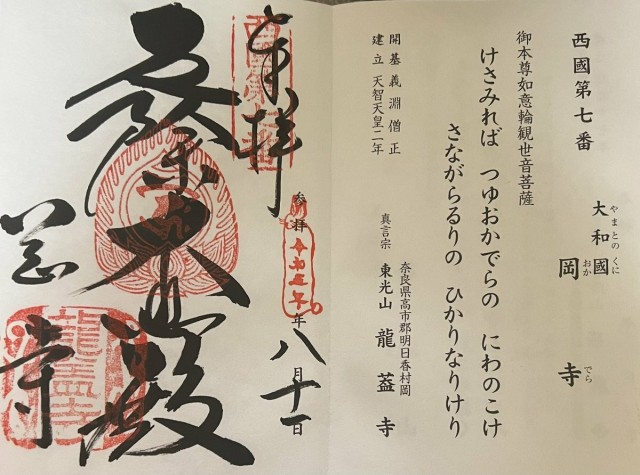 西國第七番
大和國 岡寺
やまとの くに おか でら
御本尊如意輪観世音菩薩
けさみれば つゆおかでらの にわのこけ
さながらるりの ひかりなりけり
開基 義淵僧正
建立 天智天皇二年
奈良県高市郡明日香村岡
真言宗 東光山 龍蓋寺
奉拝
西國第七番
参拝 令和五年 年八月十一日
厄除大悲殿
岡寺
龍蓋寺